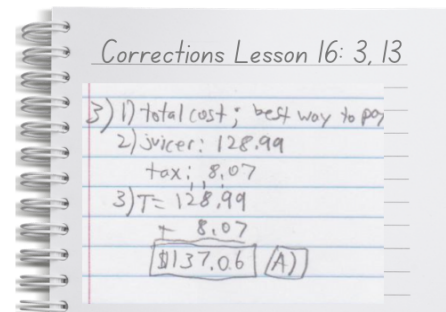 Corrections Lesson 16: 3, 13
3) 1) total cost; best way to pay
2) juicer: 128.99
tax: 8.07
3) T= 128.99
+ 8.07
$137.06 (A)